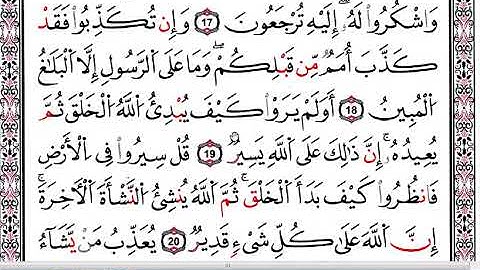 وَاشْكُرُوا لَهُ ۖ إِلَيْهِ تُرْجَعُونَ 17 وَإِن تُكَذِّبُوا فَقَدْ
كَذَّبَ أُمَمٌ مِّن قَبْلِكُمْ ۖ وَمَا عَلَى الرَّسُولِ إِلَّا الْبَلَاغُ
الْمُبِينُ 18 أَوَلَمْ يَرَوْا كَيْفَ يُبْدِئُ اللَّهُ الْخَلْقَ ثُمَّ
يُعِيدُهُ ۚ إِنَّ ذَٰلِكَ عَلَى اللَّهِ يَسِيرٌ 19 قُلْ سِيرُوا فِي الْأَرْضِ
فَانظُرُوا كَيْفَ بَدَأَ الْخَلْقَ ۚ ثُمَّ اللَّهُ يُنشِئُ النَّشْأَةَ الْآخِرَةَ ۚ
إِنَّ اللَّهَ عَلَىٰ كُلِّ شَيْءٍ قَدِيرٌ 20 يُعَذِّبُ مَن يَشَاءُ